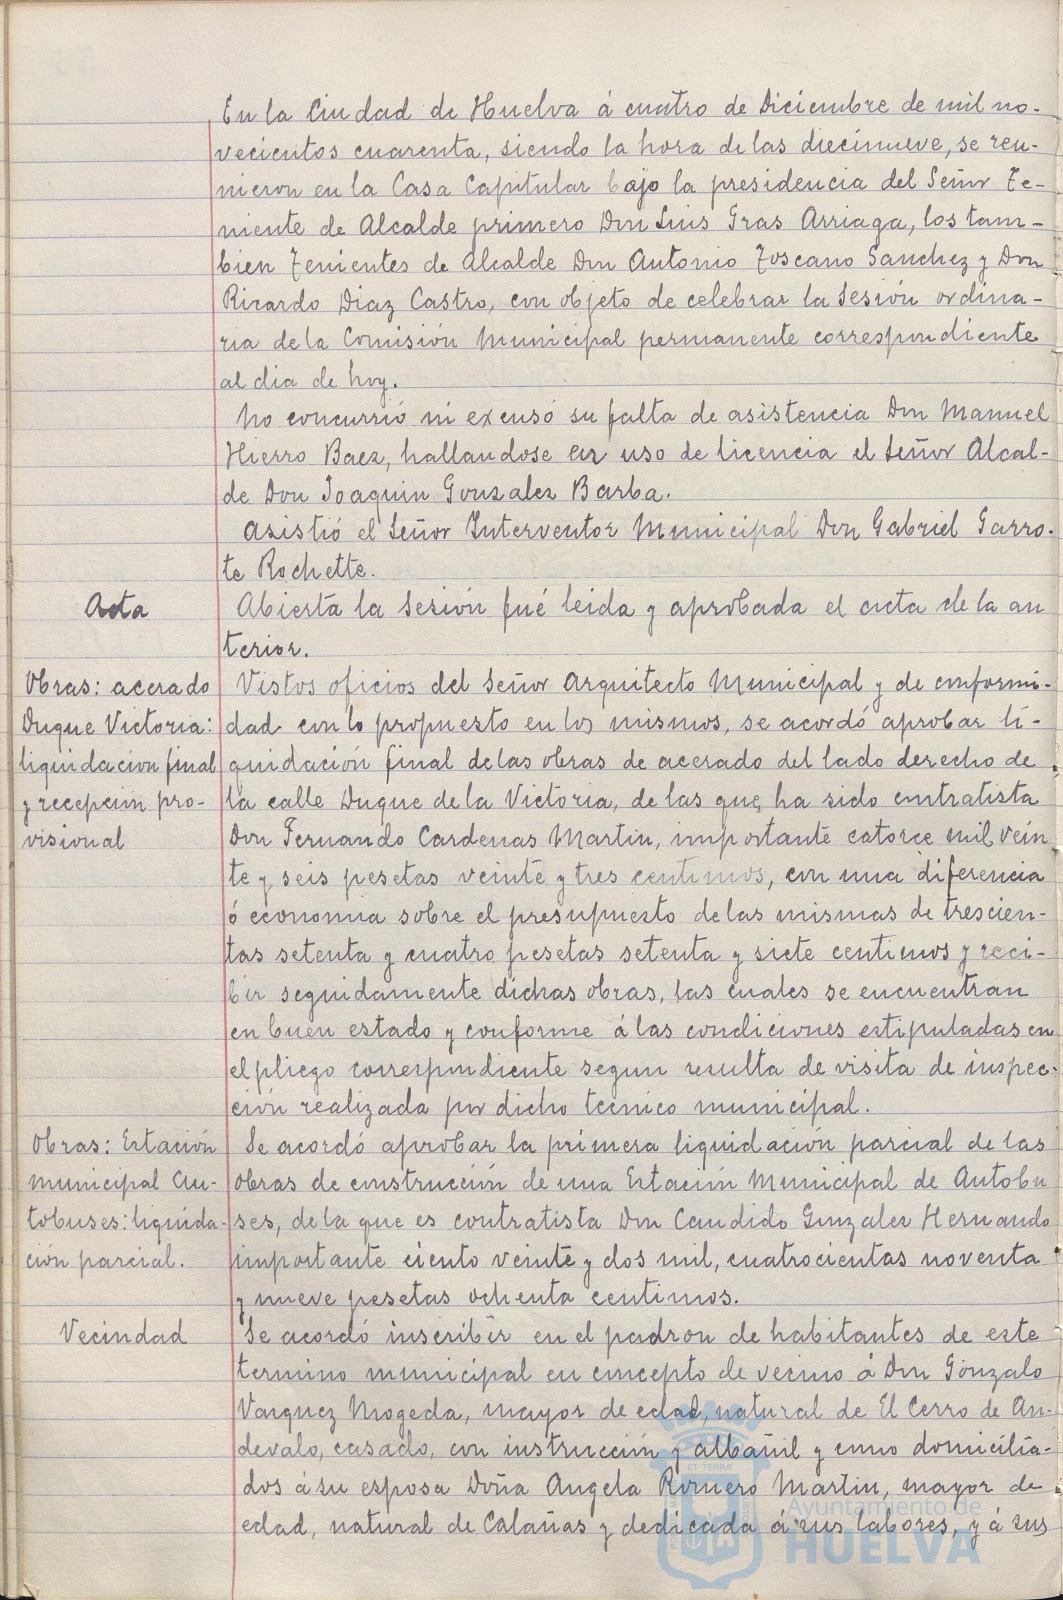 En la Ciudad de Huelva á cuatro de Diciembre de mil no-
vecientos cuarenta, siendo la hora de las diecinueve, se reu-
nieron en la Casa Capitular bajo la presidencia del Señor Te-
niente de Alcalde primero Don Luis Gras Arriaga, los tam-
bien Tenientes de Alcalde Don Antonio Toscano Sanchez y Don
Ricardo Diaz Castro, con objeto de celebrar la Sesión ordina-
ria de la Comisión Municipal permanente correspondiente
al dia de hoy.
No concurrió ni excusó su falta de asistencia Don Manuel
Hierro Baez, hallandose en uso de licencia el Señor Alcal-
de Don Joaquin Gonzalez Barba.
Asistió el Señor Interventor Municipal Don Gabriel Garro-
te Rochette.
Acta
Abierta la Sesión fué leida y aprobada el acta de la an
terior.
Obras: acerado
Duque Victoria:
liquidacion final
y recepcion pro-
visional
Vistos oficios del Señor Arquitecto Municipal y de conformi-
dad con lo propuesto en los mismos, se acordó aprobar li-
quidación final de las obras de acerado del lado derecho de
la calle Duque de la Victoria, de las que, ha sido contratista
Don Fernando Cardenas Martin, importante catorce mil vein
te y seis pesetas veinte y tres centimos, con una diferencia
ó economia sobre el presupuesto de las mismas de trescien-
tas setenta y cuatro pesetas setenta y siete centimos y reci-
bir seguidamente dichas obras, las cuales se encuentran
en buen estado y conforme á las condiciones estipuladas en
el pliego correspondiente segun resulta de visita de inspec-
ción realizada por dicho tecnico municipal.
Obras: Estación
municipal Au-
tobuses: liquida-
ción parcial.
Se acordó aprobar la primera liquidación parcial de las
obras de construcción de una Estación Municipal de Autobu
ses, de la que es contratista Don Candido Gonzalez Hernando
importante ciento veinte y dos mil, cuatrocientas noventa
y nueve pesetas ochenta centimos.
Vecindad
Se acordó inscribir en el padron de habitantes de este
termino municipal en concepto de vecino á Don Gonzalo
Vazquez Mogeda, mayor de edad, natural de El Cerro de An-
devalo, casado, con instrucción y albañil y como domicilia-
dos á su esposa Doña Angela Romero Martin, mayor de
edad, natural de Calañas y dedicada á sus labores, y á sus
Ayuntamiento de
HUELVA